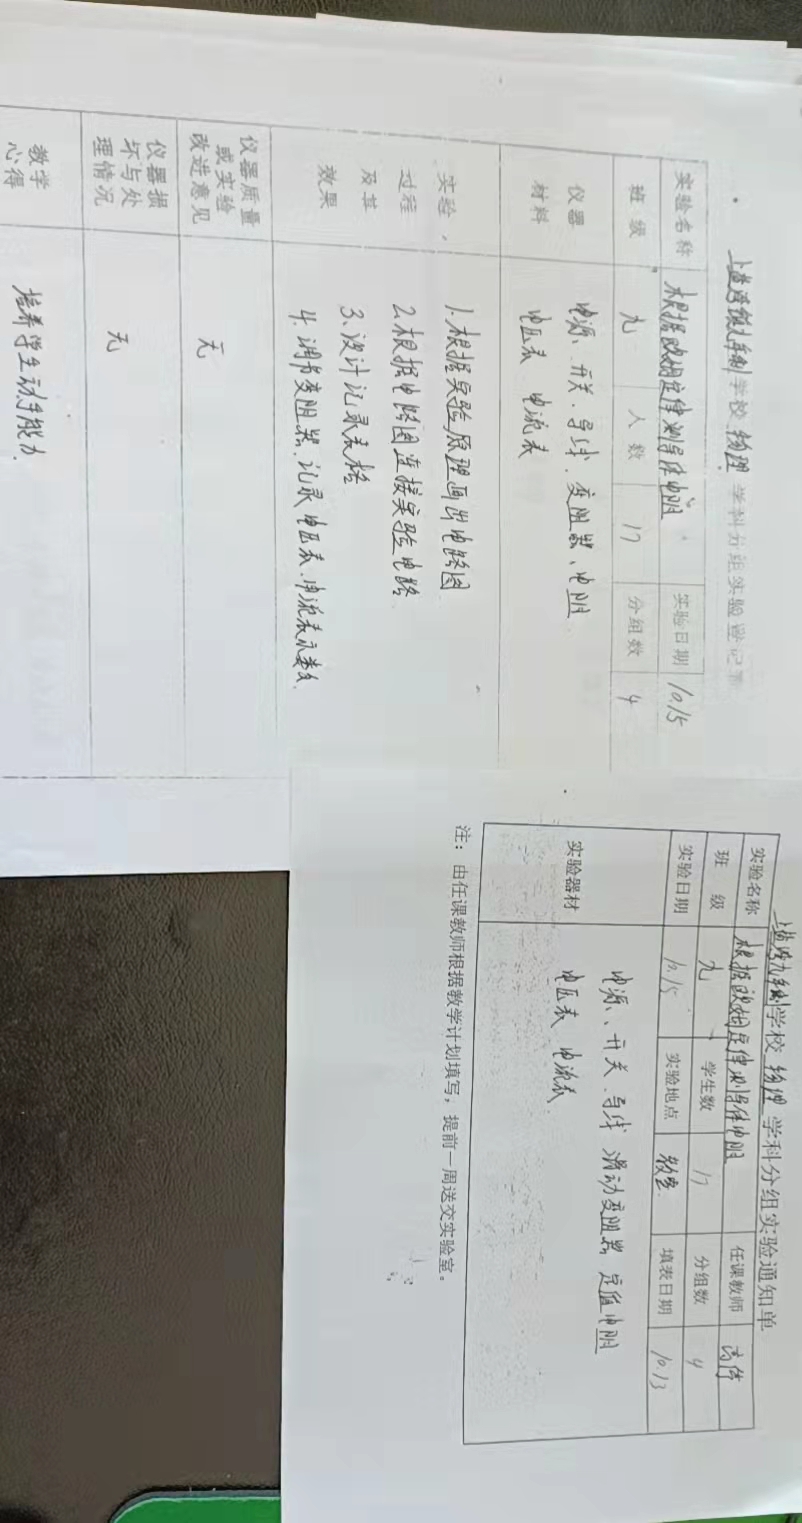 学校 物理 学科分组实验登记
实验名称 根据欧姆定律测导体电阻 实验日期 10.15
班级 九 人数 17 分组数 4
仪器材料 电源、开关、导线、变阻器、电阻
电压表 电流表
实验过程及其效果
1.根据实验原理画出电路图
2.根据电路图连接实验电路
3、设计记录表格
4.调节变阻器、记录电压表、电流表示数
仪器质量或实验改进意见 无
仪器损坏与处理情况 无
教学心得 培养学生动手能力
九年制学校 物理 学科分组实验通知单
实验名称 根据欧姆定律测导体电阻 任课教师
班级 九 学生数 17 分组数 4
实验日期 10.15 实验地点 教室 填表日期 10.13
实验器材 电源、开关、导线 滑动变阻器 定值电阻
电压表 电流表
注：由任课教师根据教学计划填写，提前一周送交实验室。